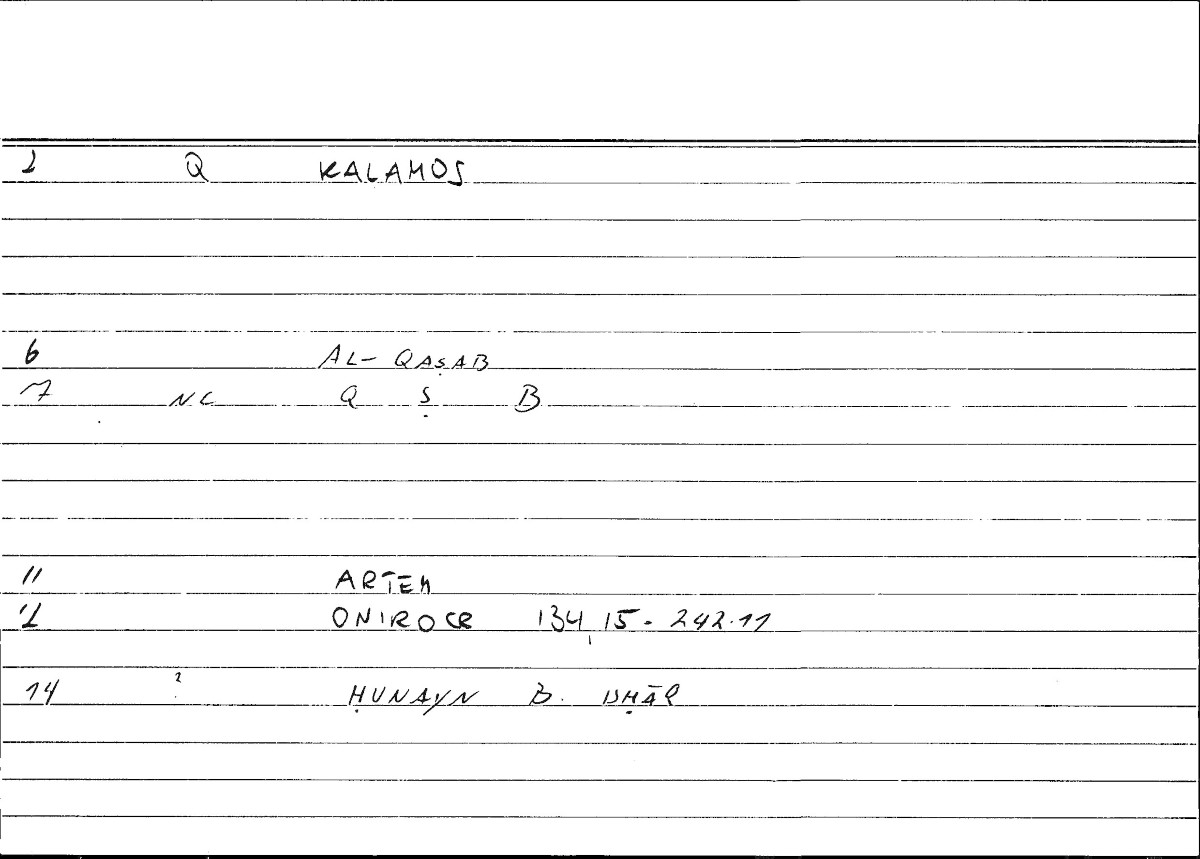 1 Q KALAMOS
6 AL- QAṢAB
7 NC Q Ṣ B
11 ARTEM
12 ONIROCR 134,15 - 242.11
14 2 ḤUNAYN B. ISḤĀQ